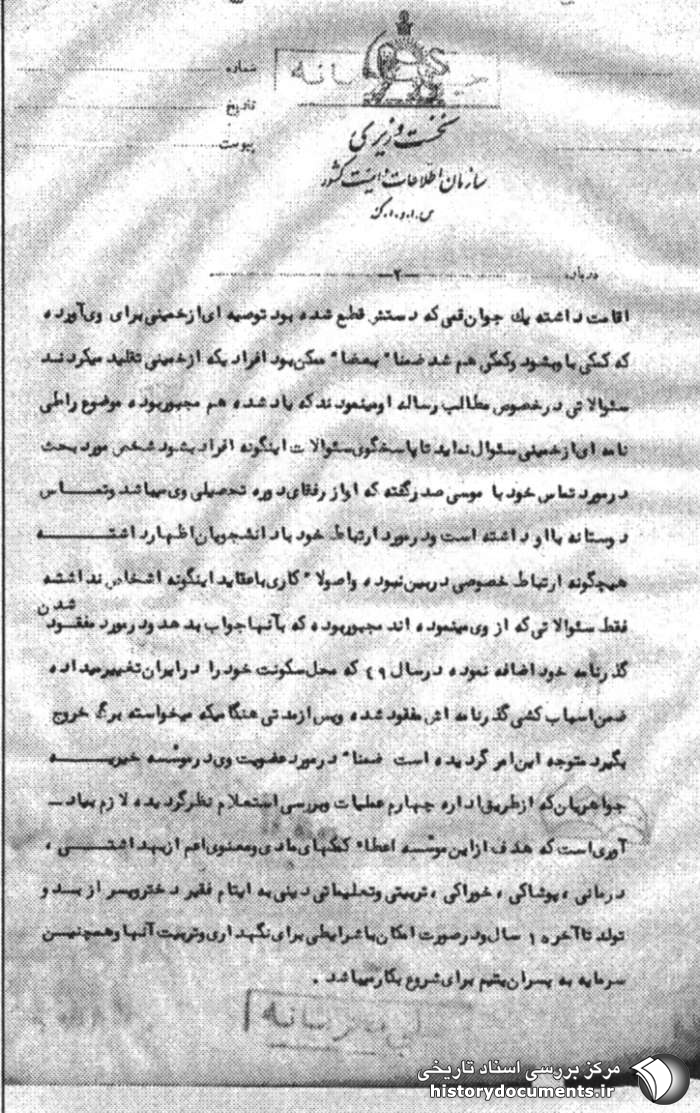 شماره
تاریخ
پیوست
نخست وزیری
سازمان اطلاعات و امنیت کشور
س.ا.و.ا.ک
درباره
-۲-
اقامت داشته یک جوان قمی که دستش قطع شده بود توصیه ای از خمینی برای وی آورده
که کمکی باو بشود و کمکی هم شد ضمنا" بعضا" ممکن بود افراد یکه از خمینی تقلید میکردند
سئوالاتی در خصوص مطالب رساله او مینمودند که یاد شده هم مجبور بوده موضوع را طی
نامه ای از خمینی سئوال نماید تا پاسخگوی سئوالات اینگونه افراد بشود شخص مورد بحث
در مورد تماس خود با موسی صدر گفته که او از رفقای دوره تحصیلی وی میباشد و تماس
دوستانه با او داشته است و در مورد ارتباط خود با دانشجویان اظهار داشته
هیچگونه ارتباط خصوصی در بین نبوده و اصولا" کاری با عقاید اینگونه اشخاص نداشته
فقط سئوالاتی که از وی مینموده اند مجبور بوده که بآنها جواب بدهد و در مورد مفقود شدن
گذرنامه خود اضافه نموده در سال ۴۹ که محل سکونت خود را در ایران تغییر میداده
ضمن اسباب کشی گذرنامه اش مفقود شده و پس از مدتی هنگامیکه میخواسته برگ خروج
بگیرد متوجه این امر گردیده است ضمنا" در مورد عضویت وی در موسسه خیریه
جواهریان که از طریق اداره چهارم عملیات و بررسی استعلام نظر گردیده لازم بیاد-
آوری است که هدف از این موسسه اعطاء کمکهای مادی و معنوی اعم از بهداشتی ،
درمانی ، پوشاکی ، خوراکی ، تربیتی و تعلیماتی دینی به ایتام فقیر دختر و پسر از بدو
تولد تا آخر ۱۵ سال و در صورت امکان با شرایطی برای نگهداری و تربیت آنها و همچنین
سرمایه به پسران یتیم برای شروع بکار میباشد .
مرکز بررسی اسناد تاریخی
historydocuments.ir